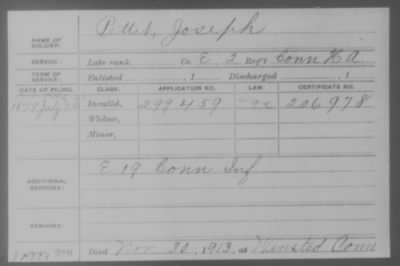 Pettit, Joseph
NAME OF SOLDIER:
SERVICE: Late rank, Co. E, 2 Reg't Conn H A
TERM OF SERVICE: Enlisted , 1 Discharged , 1
DATE OF FILING. CLASS. APPLICATION NO. LAW. CERTIFICATE NO.
1879 July Invalid, 299459 206978
Widow,
Minor,
E 19 Conn Inf
ADDITIONAL SERVICES:
REMARKS:
Died Nov 30, 1913, at Winsted Conn